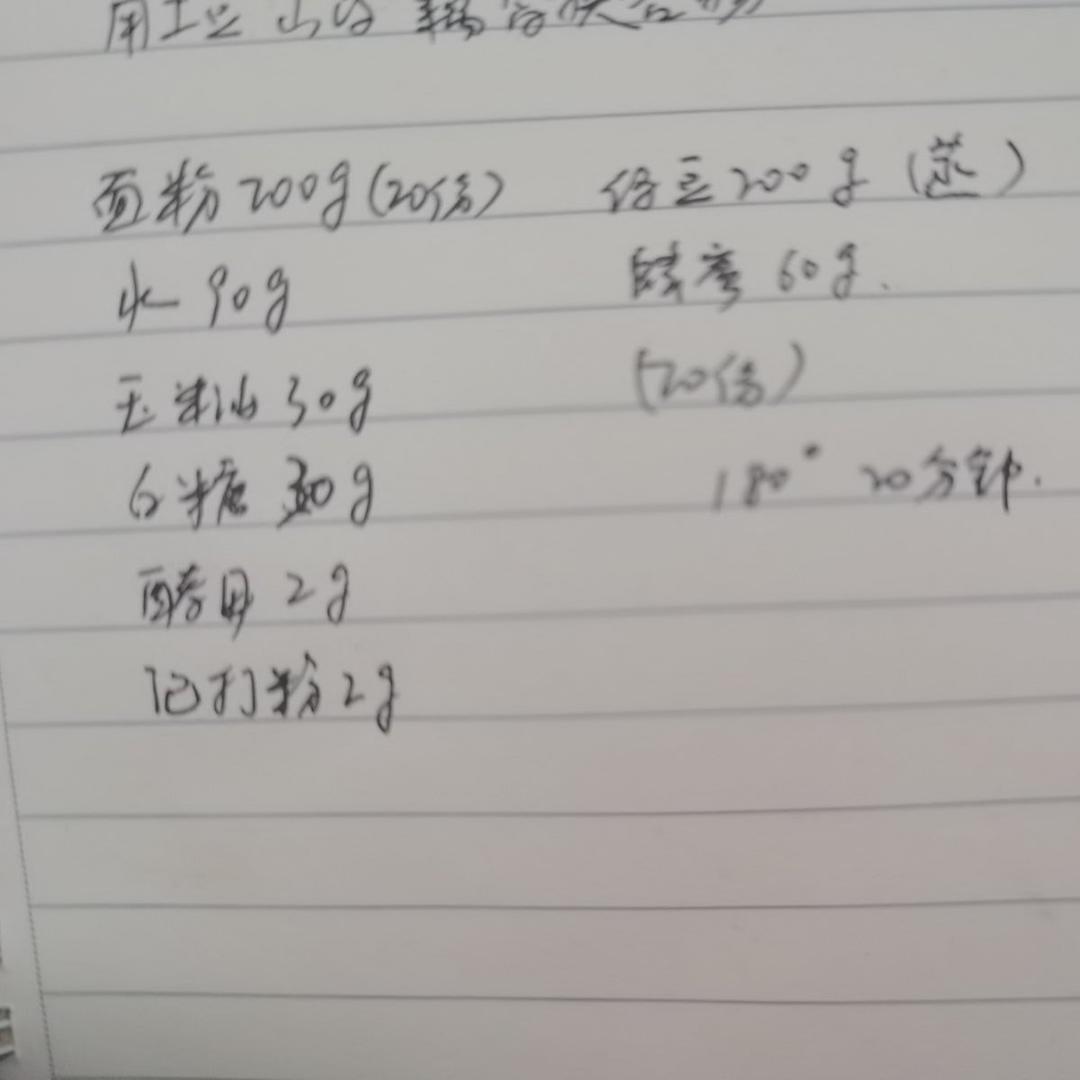 面粉200g(20份) 绿豆200g(蒸)
水90g
蜂蜜60g.
玉米油30g
(20份)
白糖30g
180° 20分钟.
酵母2g
泡打粉2g